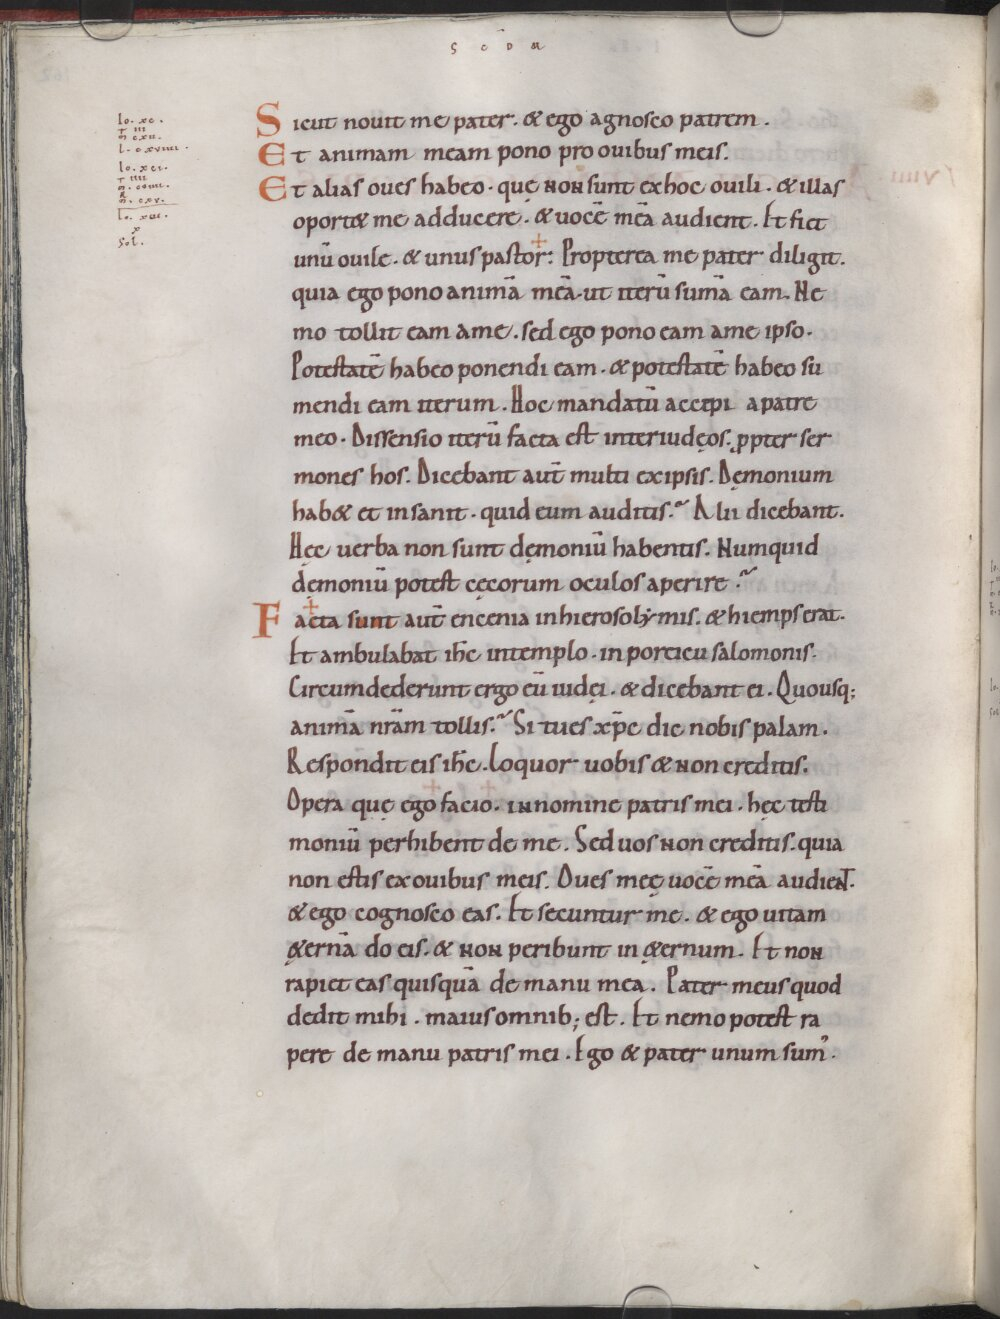 S C D M
Io. xc.
T III
M cxii.
L. cxviiii.
Io. xci.
T IIII
M. ccviii.
R. cxv.
Io. xcii.
x
Sol.
Sicut nouit me pater. & ego agnosco patrem.
Et animam meam pono pro ouibus meis.
Et alias oues habeo. quę non sunt ex hoc ouili. & illas
oport& me adducere. & uocē mēā audient. Et fiet
unū ouile. & unus pastor: Propterea me pater diligit.
quia ego pono animā mēā. ut iterū sumā eam. Ne
mo tollit eam a me. sed ego pono eam a me ipso.
Potestatē habeo ponendi eam. & potestatē habeo su
mendi eam iterum. Hoc mandatū accepi a patre
meo. Dissensio iterū facta est inter iudęos. ꝓpter ser
mones hos. Dicebant aut̄ multi ex ipsis. Dęmonium
hab& et insanit. quid eum auditis? Alii dicebant.
Hęc uerba non sunt dęmoniū habentis. Numquid
dęmoniū potest cęcorum oculos aperire?
Facta sunt aut̄ encenia in hierosolymis. & hiemps erat.
Et ambulabat ih̄c in templo. in porticu salomonis.
Circumdederunt ergo eū iudęi. & dicebant ei. Quousq;
animā nrām tollis? Si tu es xp̄c dic nobis palam.
Respondit eis ih̄c. Loquor uobis & non creditis.
Opera quę ego facio. in nomine patris mei. hęc testi
moniū perhibent de me. Sed uos non creditis. quia
non estis ex ouibus meis. Oues męę uocē mēā audient.
& ego cognosco eas. Et secuntur me. & ego uitam
&ernā do eis. & non peribunt in &ernum. Et non
rapiet eas quisquā de manu mea. Pater meus quod
dedit mihi. maius omnib; est. Et nemo potest ra
pere de manu patris mei. Ego & pater unum sum'.